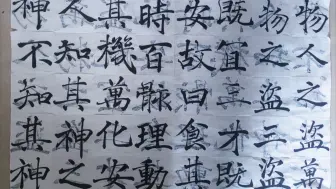 物人之盜萬
物之盜三盜
既宜三才既
安故曰食其
時百骸理動
其機萬化安
人知其神之
神不知其神